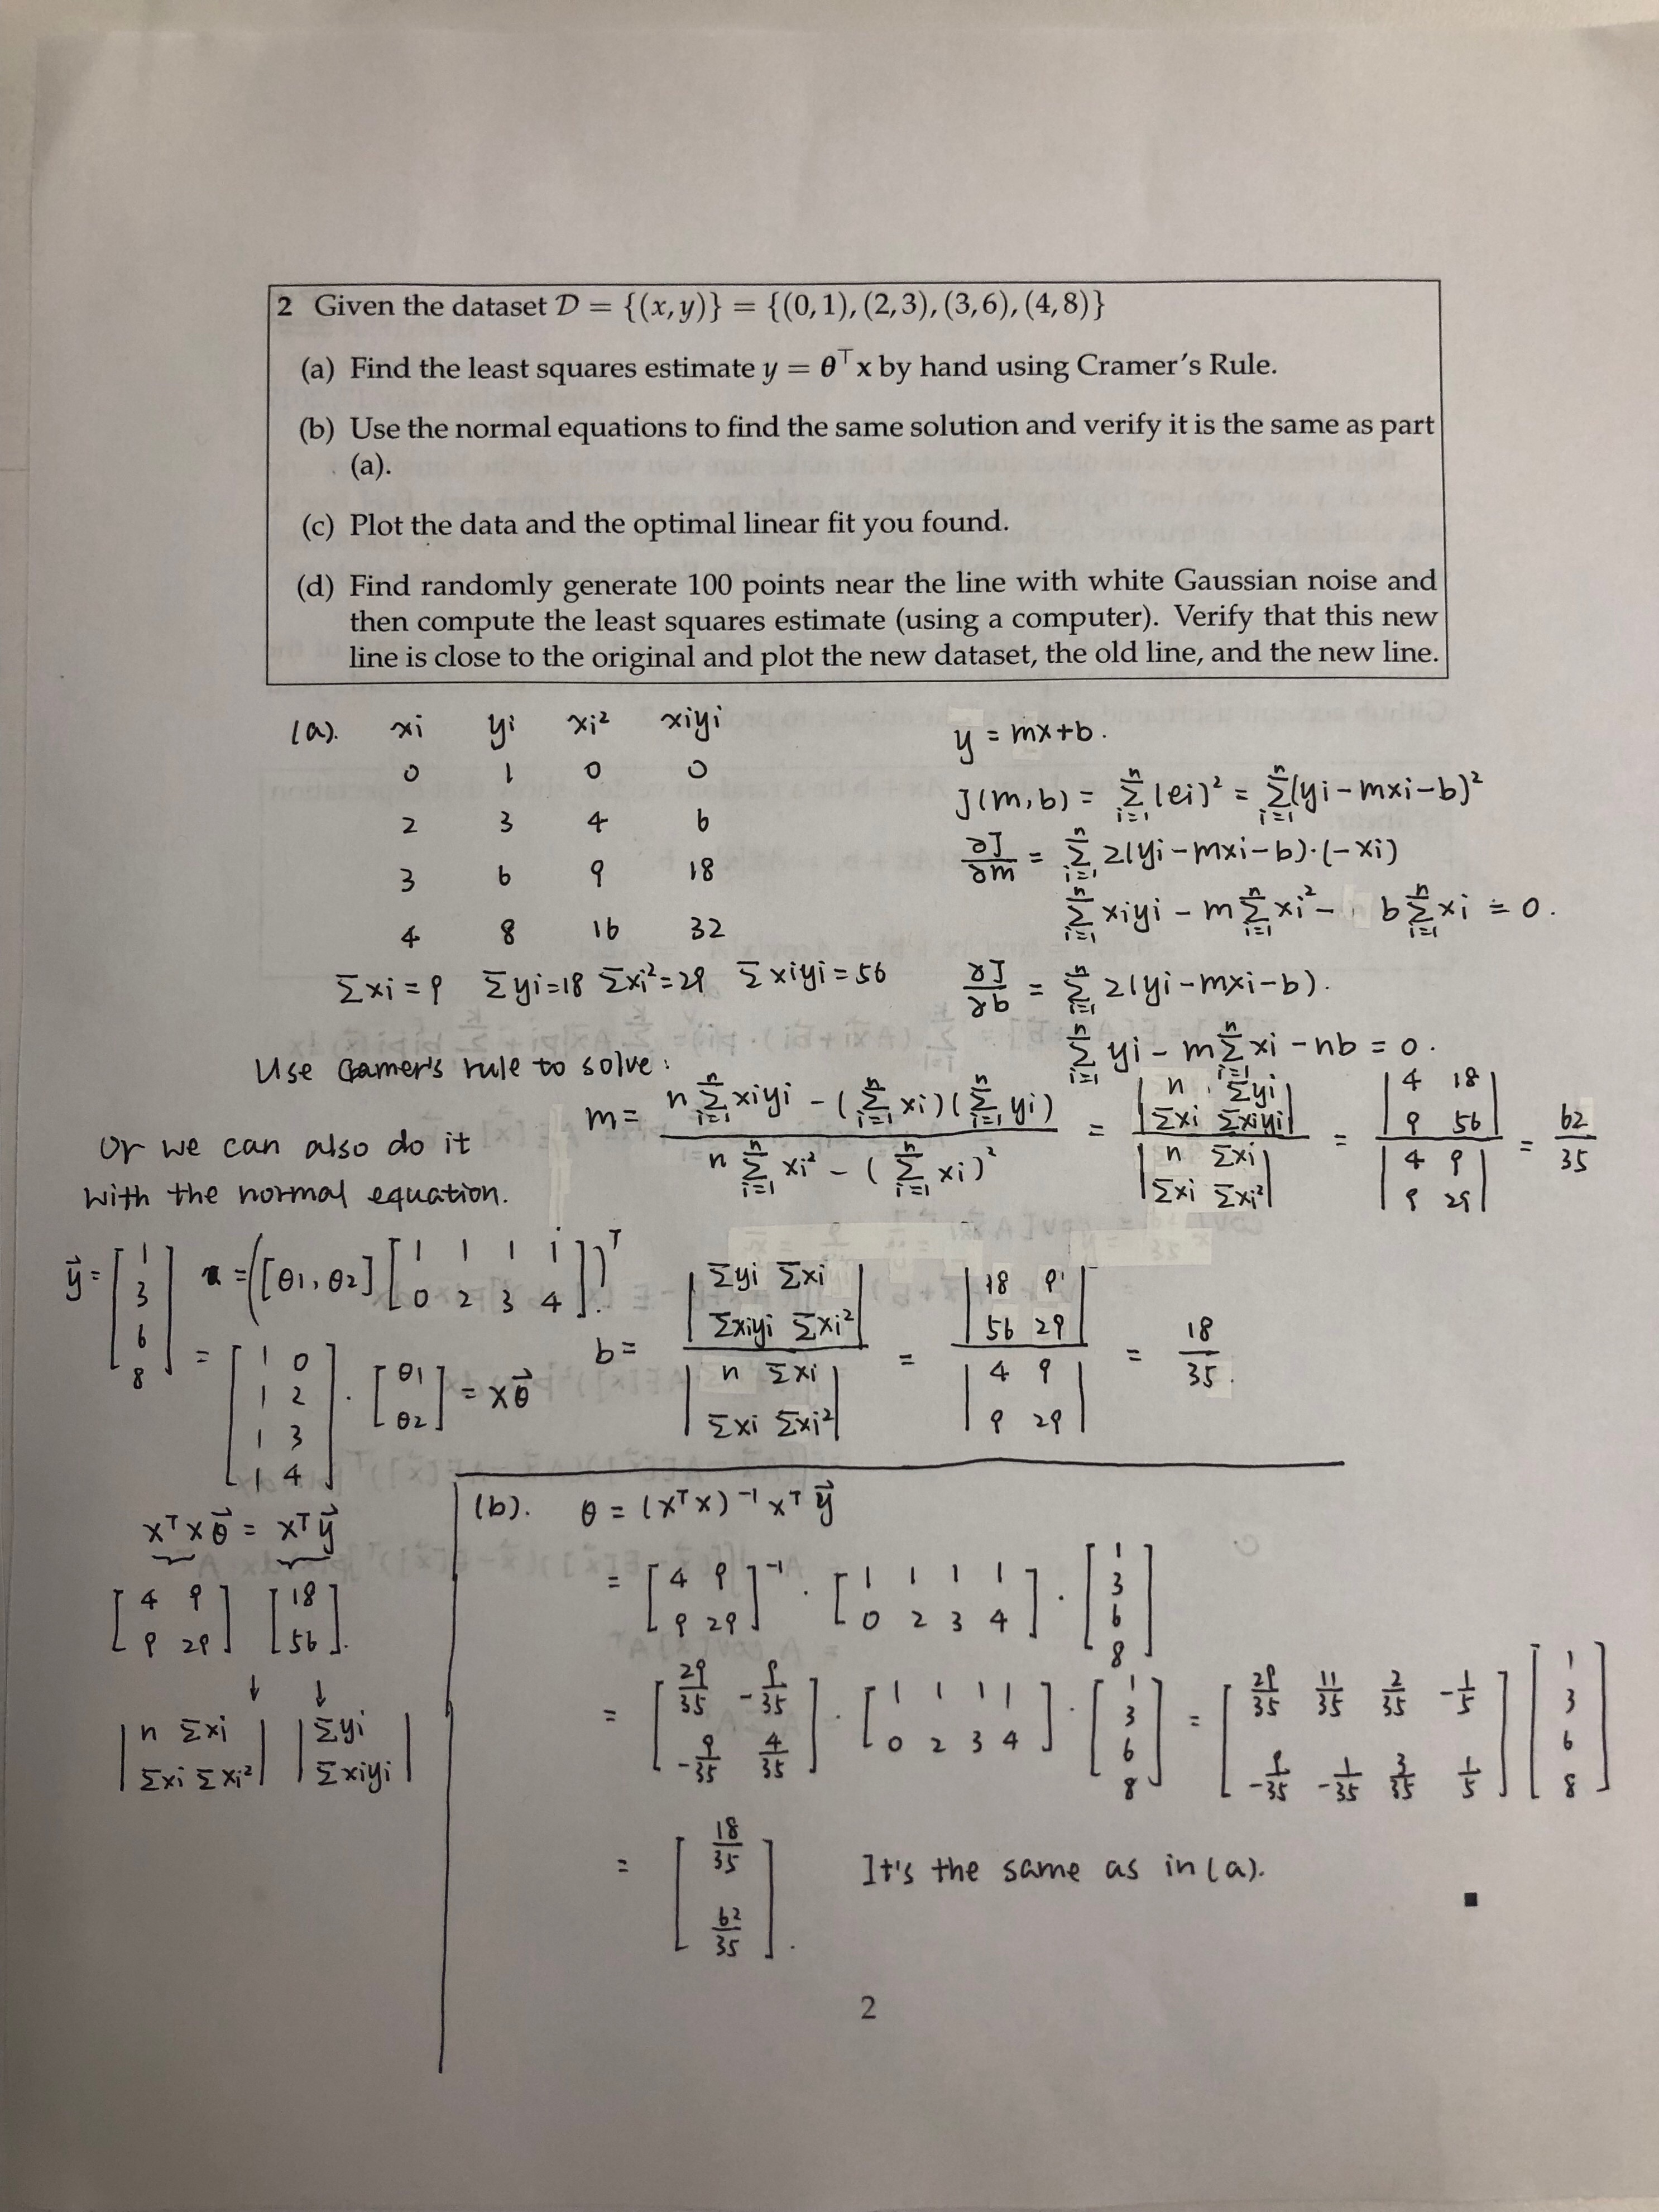 2 Given the dataset D = {(x, y)} = {(0, 1), (2, 3), (3, 6), (4, 8)}
(a) Find the least squares estimate y = θ⊤x by hand using Cramer's Rule.
(b) Use the normal equations to find the same solution and verify it is the same as part
(a).
(c) Plot the data and the optimal linear fit you found.
(d) Find randomly generate 100 points near the line with white Gaussian noise and
then compute the least squares estimate (using a computer). Verify that this new
line is close to the original and plot the new dataset, the old line, and the new line.
(a). xi yi xi² xiyi
0 1 0 0
2 3 4 6
3 6 9 18
4 8 16 32
Σxi = 9 Σyi=18 Σxi²=29 Σxiyi = 56
y = mx+b.
J(m,b) = Σ_{i=1}^n (ei)² = Σ_{i=1}^n (yi-mxi-b)²
∂J/∂m = Σ_{i=1}^n 2(yi-mxi-b)·(-xi)
Σ_{i=1}^n xiyi - m Σ_{i=1}^n xi² - b Σ_{i=1}^n xi = 0.
∂J/∂b = Σ_{i=1}^n 2(yi-mxi-b).
Σ_{i=1}^n yi - m Σ_{i=1}^n xi - nb = 0.
Use Cramer's rule to solve:
m = (n Σ_{i=1}^n xiyi - (Σ_{i=1}^n xi)(Σ_{i=1}^n yi)) / (n Σ_{i=1}^n xi² - (Σ_{i=1}^n xi)²) = |n Σyi; Σxi Σxiyi| / |n Σxi; Σxi Σxi²| = |4 18; 9 56| / |4 9; 9 29| = 62/35
b = |Σyi Σxi; Σxiyi Σxi²| / |n Σxi; Σxi Σxi²| = |18 9; 56 29| / |4 9; 9 29| = 18/35.
Or we can also do it
with the normal equation.
y⃗ = [1; 3; 6; 8] = ([θ1, θ2] [1 1 1 1; 0 2 3 4])^T
= [1 0; 1 2; 1 3; 1 4] · [θ1; θ2] = Xθ⃗
X^T X θ⃗ = X^T y⃗
[4 9; 9 29] [18; 56].
↓ ↓
|n Σxi; Σxi Σxi²| |Σyi; Σxiyi|
(b). θ = (X^T X)^-1 X^T y⃗
= [4 9; 9 29]^-1 · [1 1 1 1; 0 2 3 4] · [1; 3; 6; 8]
= [29/35 -9/35; -9/35 4/35] · [1 1 1 1; 0 2 3 4] · [1; 3; 6; 8] = [29/35 11/35 2/35 -1/5; -9/35 -1/35 3/35 1/5] [1; 3; 6; 8]
= [18/35; 62/35].
It's the same as in (a).
2